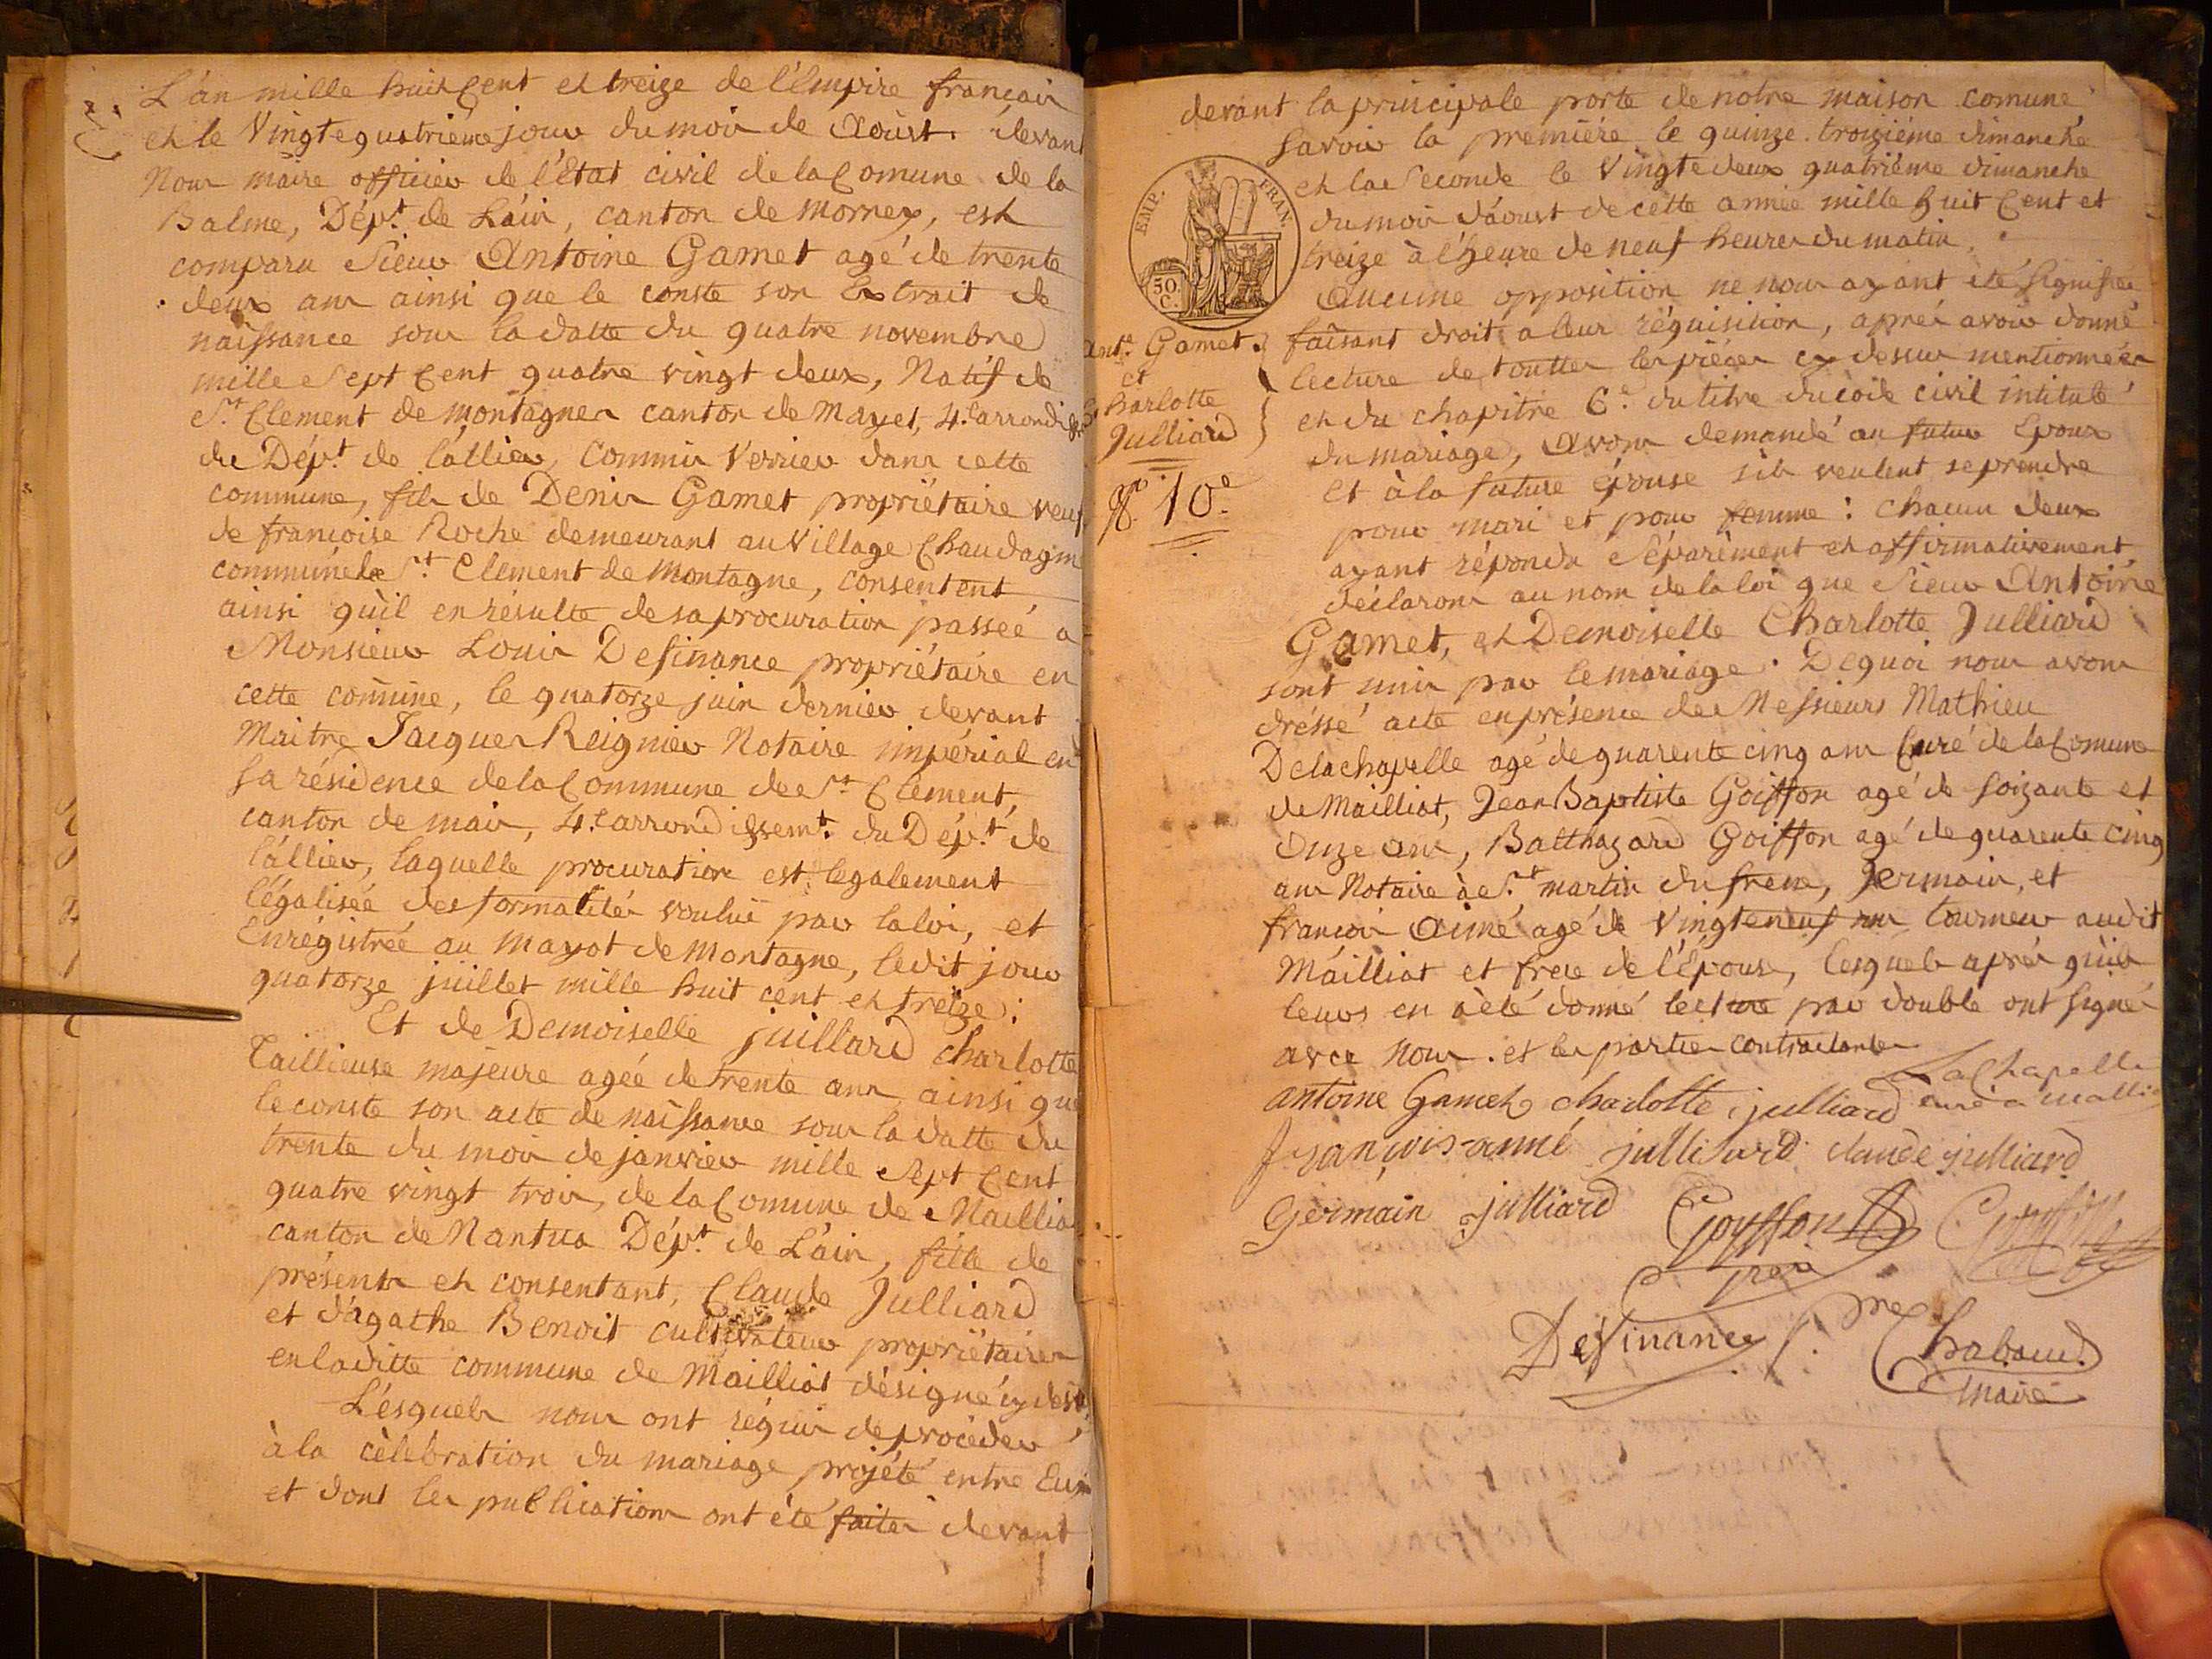 L'an mille huit Cent et treize de l'Empire françois
et le Vingtequatriéme jour du mois de Aoûst. devant
Nous maire officier de l'Etat civil de la Comune de la
Balme, Dépt. de L'ain, canton de mornex, est
comparu Sieur Antoine Gamet agé de trente
deux ans ainsi que le conste son Extrait de
naissance sous la datte du quatre novembre
mille Sept Cent quatre vingt deux, Natif de
St. Clement de montagnes canton de Mayet, 4.e arrondis
du Dépt. de l'allier, Commis Verrier dans cette
commune, fils de Denis Gamet propriétaire veuf
de francoise Roche demeurant au Village Chaudagne
commune de St. Clement de Montagne, consentent
ainsi qu'il en résulte de sa procuration passeé a
Monsieur Louis Definance propriétaire en
cette comune, le quatorze juin dernier devant
Maitre Jacques Reignier Notaire impérial en
sa résidence de la Commune de St. Clément,
canton de mair, 4.e arrondissemt. du Dépt. de
l'állier, laquelle procuration est légalement
légalisée des formalités voulue par la loi, et
Enrégistrée au Mayot de Montagne, ledit jour
quatorze juillet mille huit cent et treize;
Et de Demoiselle juillard Charlotte
Taillieuse majeure agée de trente ans ainsi que
le conste son acte de naissance sous la datte du
trente du mois de janvier mille Sept Cent
quatre vingt trois, de la Comune de Mailliat
canton de Nantua Dépt. de L'ain, fille de
présents et consentant, Claude Julliard
et d'agathe Benoit cultivateur propriétaires
en laditte commune de Mailliat désigné cy dessus
Lésquels nous ont réquis de procéder
à la cèlébration du mariage projété entre Eux
et dont les publications ont été faites devant
devant la principale porte de notre maison comune
savoir la premiére le quinze troiziéme dimanche
et la Seconde le Vingtedeux quatriéme dimanche
du mois d'áoust de cette année mille huit Cent et
treize à l'heure de neuf heures du matin,
Aucune opposition ne nous ayant été signifiée
faisant droit a leur réquisition, aprés avoir donné
lecture de touttes les piéces cy dessus mentionneés
et du chapitre 6.e du titre du code civil intitulé
du mariage, Avons demandé au futur Epoux
et à la future épouse s'ils veulent se prendre
pour mari et pour femme : chacun deux
ayant répondu Séparément et affirmativement,
déclarons au nom de la loi que Sieur Antoine
Gamet, et Demoiselle Charlotte Julliard
sont unis par le mariage. Dequoi nous avons
dréssé acte en présence de Messieurs Mathieu
Delachapelle agé de quarente cinq ans Curé de la Comune
de Mailliat, Jean Baptiste Goiffon agé de soizante et
Onze ans, Balthazard Goiffon agé de quarente cinq
ans Notaire à St. martin du frene, Jermain, et
francois Aimé agé de Vingteneuf ans tourneur audit
Máilliat et frere de l'Épouse, lesquels aprés qu'il
leurs en à été donné lecture par double ont signé
avec Nous. et les parties contractantes
EMP. FRAN.
50.
C.
Ante. Gamet.
et
Charlotte
Julliard
No. 10.e
LaChapelle
antoine Gamet charlotte julliard curé a mallia
françois-aimé julliard claude julliard
Germain julliard Goyffon
Definance Chaboud
maire